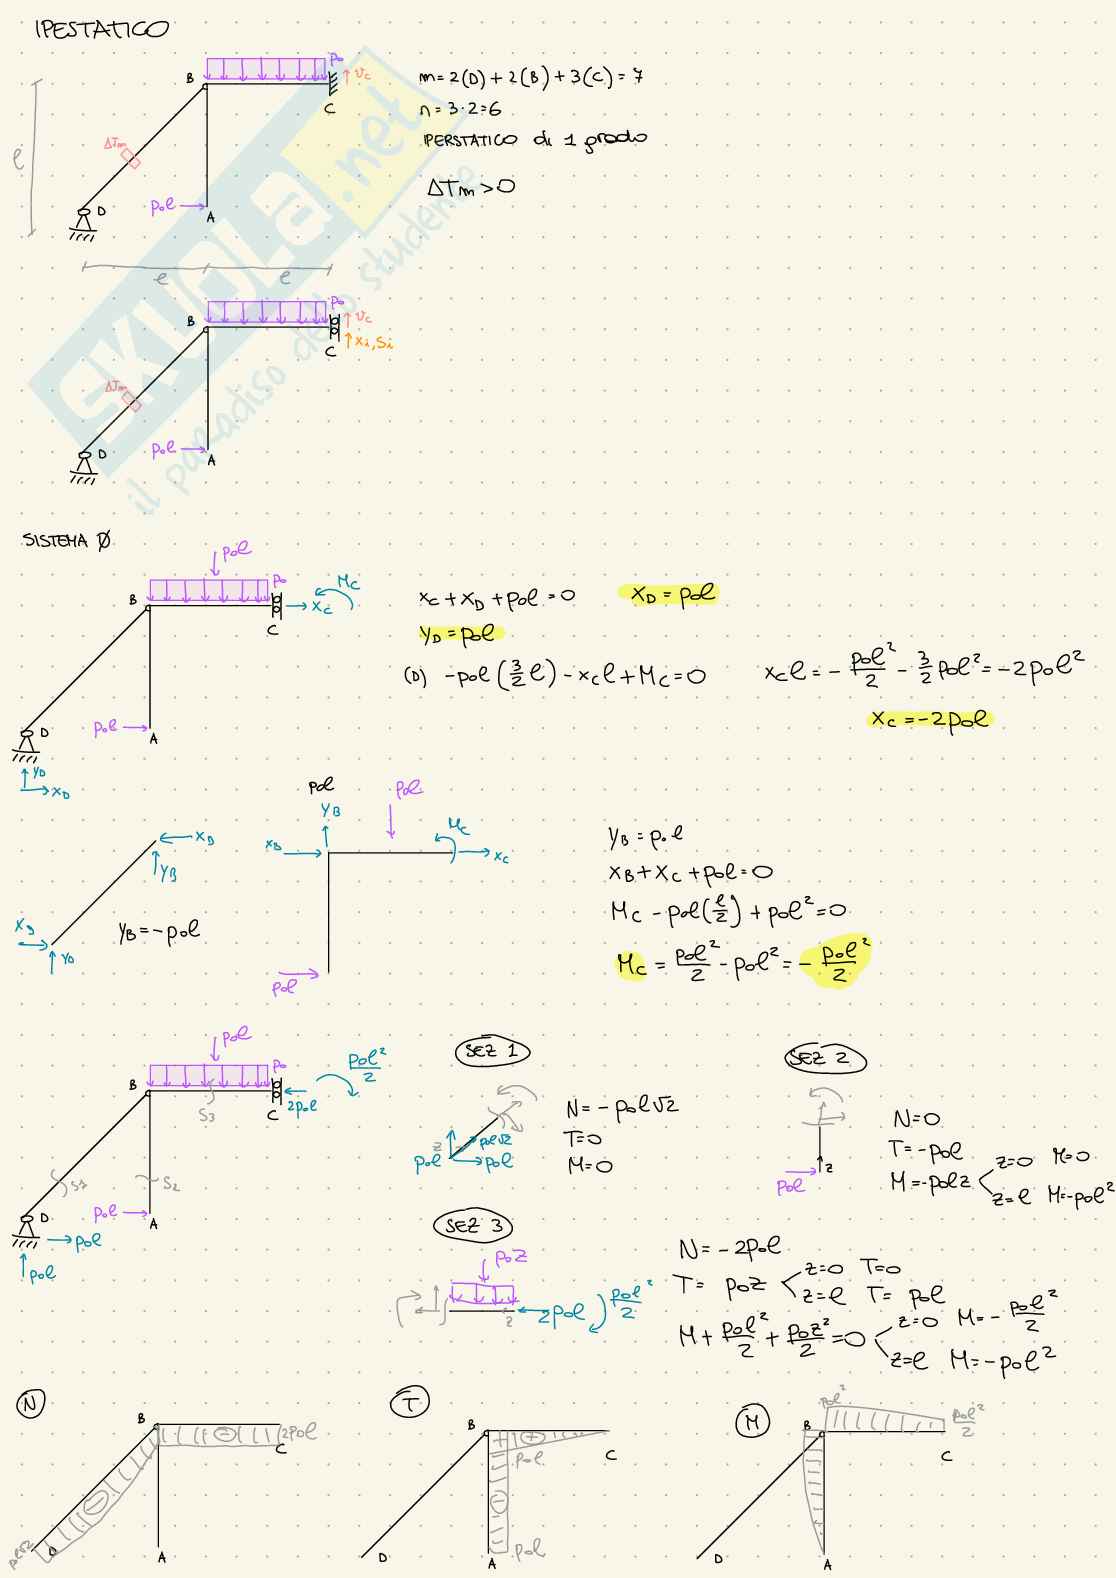 IPESTATICO
p₀
B
v_C
C
m = 2(D) + 2(B) + 3(C) = 7
n = 3·2 = 6
IPERSTATICO di 1 grado
ΔTm > 0
ΔTm
l
D
p₀l
A
l
l
SKUOLA.net
il paradiso dello studente
p₀
B
v_C
x₁, S₁
C
ΔTm
D
p₀l
A
SISTEMA Ø
p₀l
p₀
M_C
B
x_C
C
D
p₀l
A
Y_D
x_D
x_C + x_D + p₀l = 0
x_D = p₀l
Y_D = p₀l
(D) -p₀l (3/2 l) - x_C l + M_C = 0
x_C l = - p₀l²/2 - 3/2 p₀l² = -2p₀l²
x_C = -2p₀l
x_B
Y_B
x_D
Y_D
Y_B = -p₀l
p₀l
Y_B
p₀l
M_C
x_B
x_C
p₀l
Y_B = p₀l
x_B + x_C + p₀l = 0
M_C - p₀l (l/2) + p₀l² = 0
M_C = p₀l²/2 - p₀l² = - p₀l²/2
p₀l
p₀
p₀l²/2
B
2p₀l
C
S3
S1
S2
D
p₀l
A
p₀l
p₀l
SEZ 1
z
p₀l√2
p₀l
p₀l
N = -p₀l√2
T = 0
M = 0
SEZ 2
z
p₀l
N = 0
T = -p₀l
M = -p₀z
z=0 M=0
z=l M=-p₀l²
SEZ 3
p₀z
z
2p₀l
p₀l²/2
N = -2p₀l
T = p₀z
z=0 T=0
z=l T= p₀l
M + p₀l²/2 + p₀z²/2 = 0
z=0 M= - p₀l²/2
z=l M= -p₀l²
N
B
2p₀l
C
p₀l√2
D
A
T
B
C
p₀l
D
A
p₀l
M
p₀l²
p₀l²/2
B
C
D
A